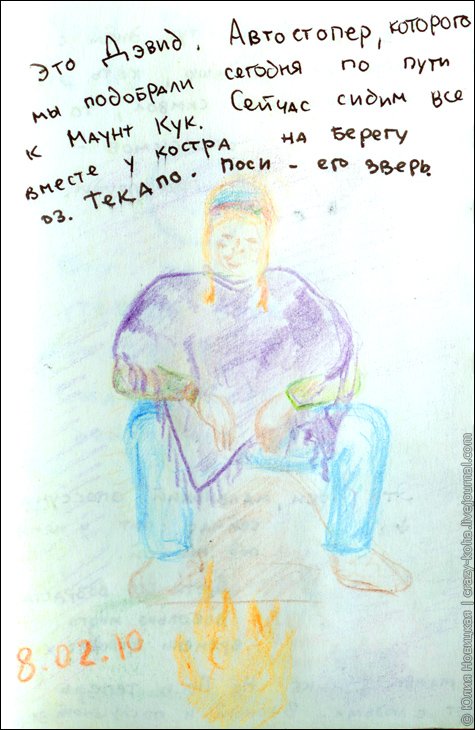 это Дэвид. Автостопер, которого
мы подобрали сегодня по пути
к Маунт Кук. Сейчас сидим все
вместе у костра на берегу
оз. Текапо. Поси - его зверь.
8.02.10
© Юлия Новицкая | crazy-koha.livejournal.com